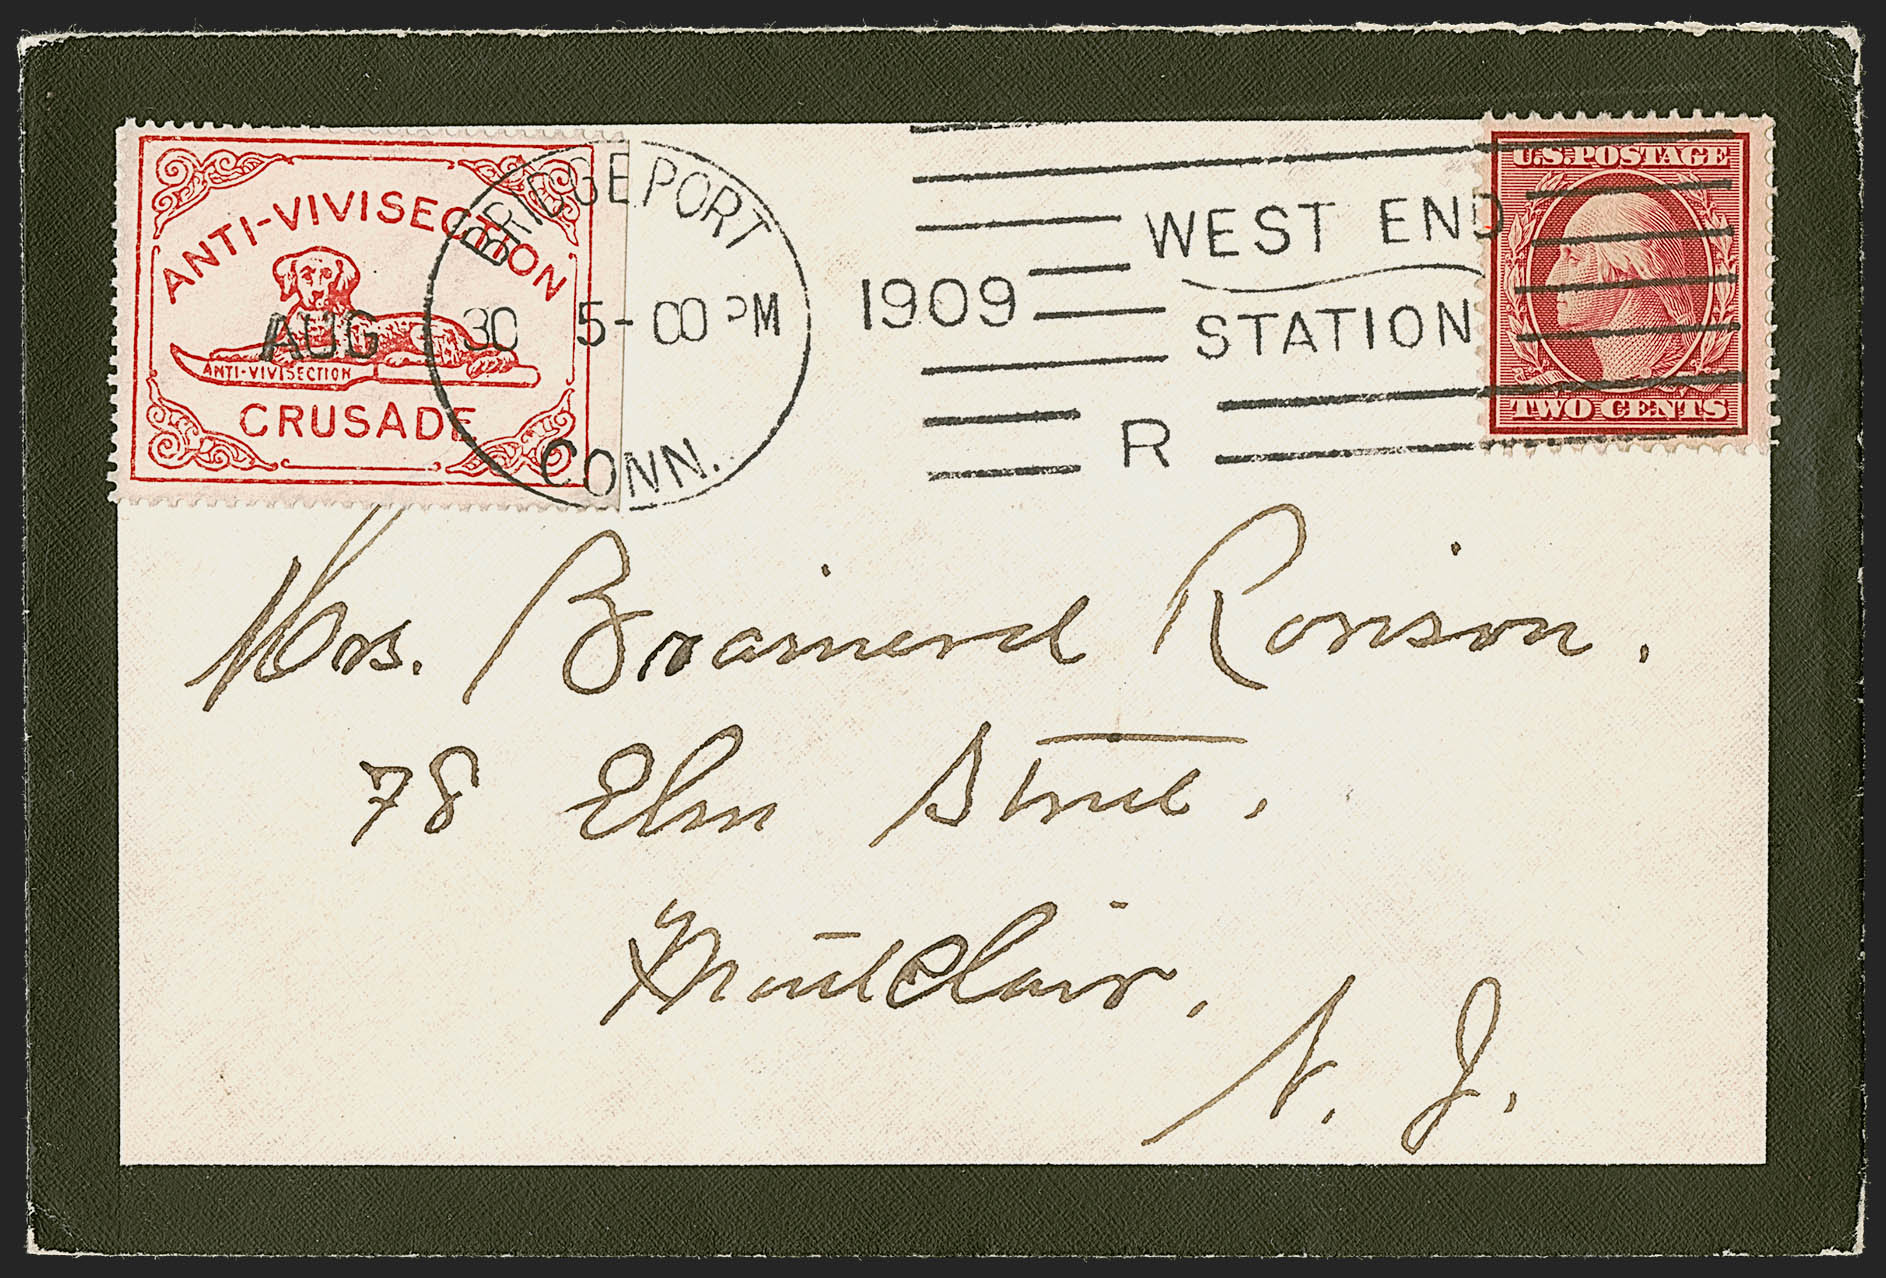 ANTI-VIVISECTION
ANTI-VIVISECTION
CRUSADE
BRIDGEPORT
AUG 30 5-00 PM
CONN.
1909
WEST END
STATION
R
U.S. POSTAGE
TWO CENTS
Mrs. Brainerd Ronison.
78 Elm Street.
Montclair,
N. J.